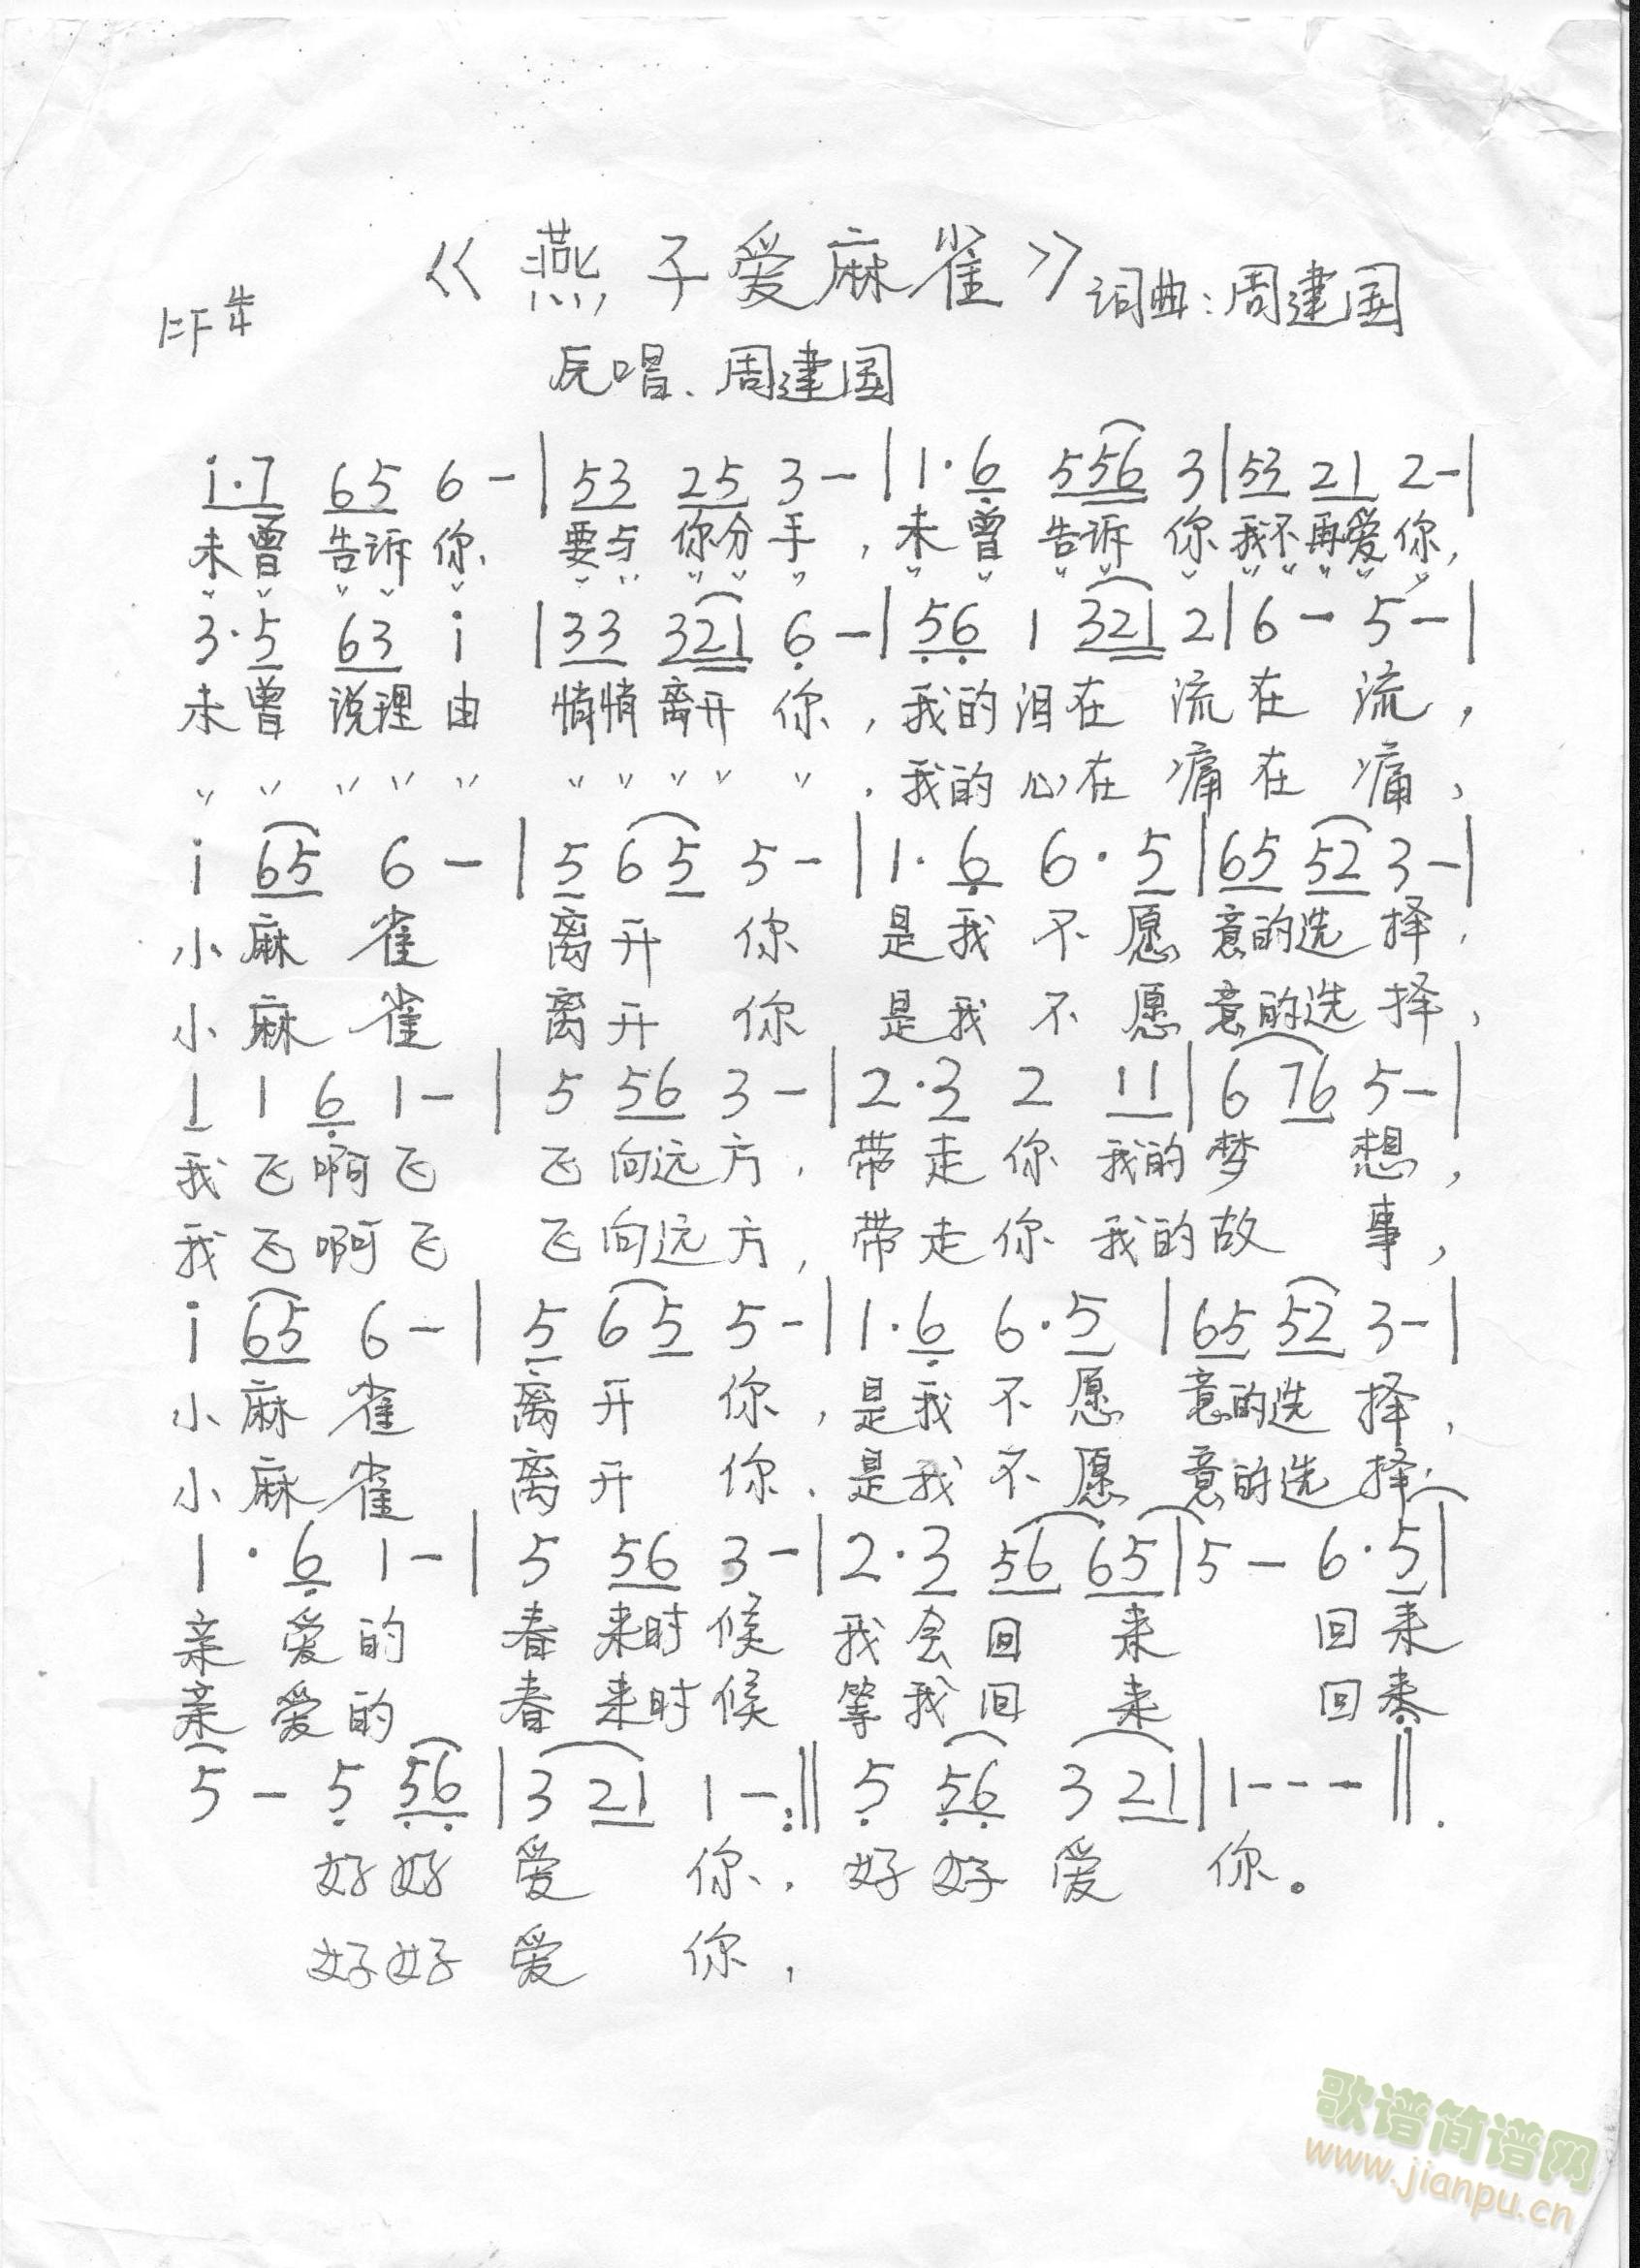 《燕子爱麻雀》 词曲:周建国
1=F 4/4
原唱、周建国
i·7 65 6 - | 53 25 3 - | 1·6 556 3 | 53 21 2 - |
未曾告诉你、 要与你分手,未曾告诉你我不再爱你,
〃〃〃〃〃 〃〃〃〃〃 〃〃〃〃〃〃〃〃〃〃
3·5 63 i | 33 321 6 - | 56 1 321 2 | 6 - 5 - |
未曾说理由 悄悄离开你,我的泪在流在流,
〃〃〃〃〃 〃〃〃〃〃.我的心在痛在痛,
i 65 6 - | 5 65 5 - | 1·6 6·5 | 65 52 3 - |
小麻雀 离开你 是我不愿意的选择,
小麻雀 离开你 是我不愿意的选择,
1 1 6 1 - | 5 56 3 - | 2·3 2 11 | 6 76 5 - |
我飞啊飞 飞向远方,带走你我的梦想,
我飞啊飞 飞向远方,带走你我的故事,
i 65 6 - | 5 65 5 - | 1·6 6·5 | 65 52 3 - |
小麻雀 离开你,是我不愿意的选择,
小麻雀 离开你、是我不愿意的选择,
1·6 1 - | 5 56 3 - | 2·3 56 65 | 5 - 6·5 |
亲爱的 春来时候 我会回来 回来
亲爱的 春来时候 等我回来 回来
5 - 5 56 | 3 21 1 - :‖ 5 56 3 21 | 1 - - - ‖.
好好爱你,好好爱你。
好好爱你,
歌谱简谱网
www.jianpu.cn